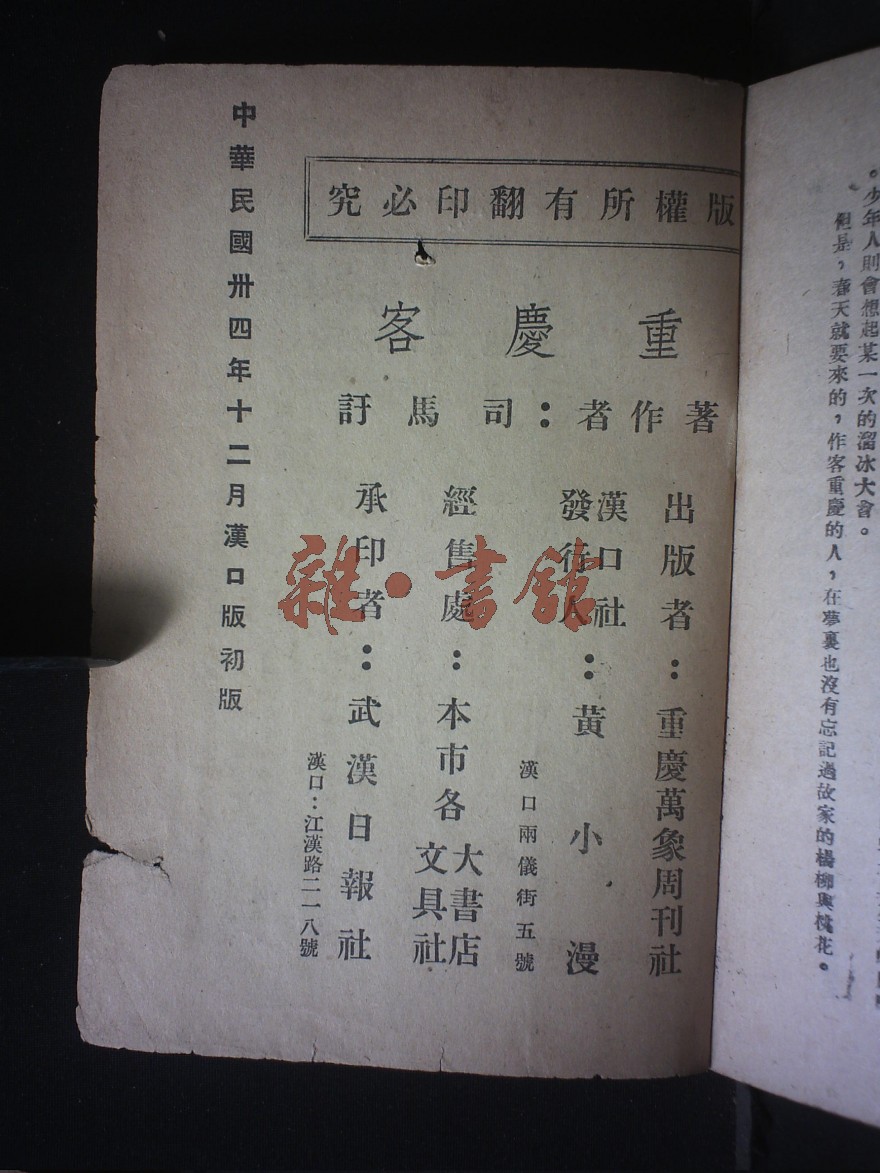 。少年人則會想起某一次的溜冰大會。
但是，春天就要來的，作客重慶的人，在夢裏也沒有忘記過故家的楊柳與桃花。
版權所有翻印必究
重慶客
著作者：司馬訏
出版者：重慶萬象周刊社
漢口社
發行人：黃小漫
漢口兩儀街五號
經售處：本市各大書店
文具社
承印者：武漢日報社
漢口：江漢路二一八號
中華民國卅四年十二月漢口版初版
雜·書館